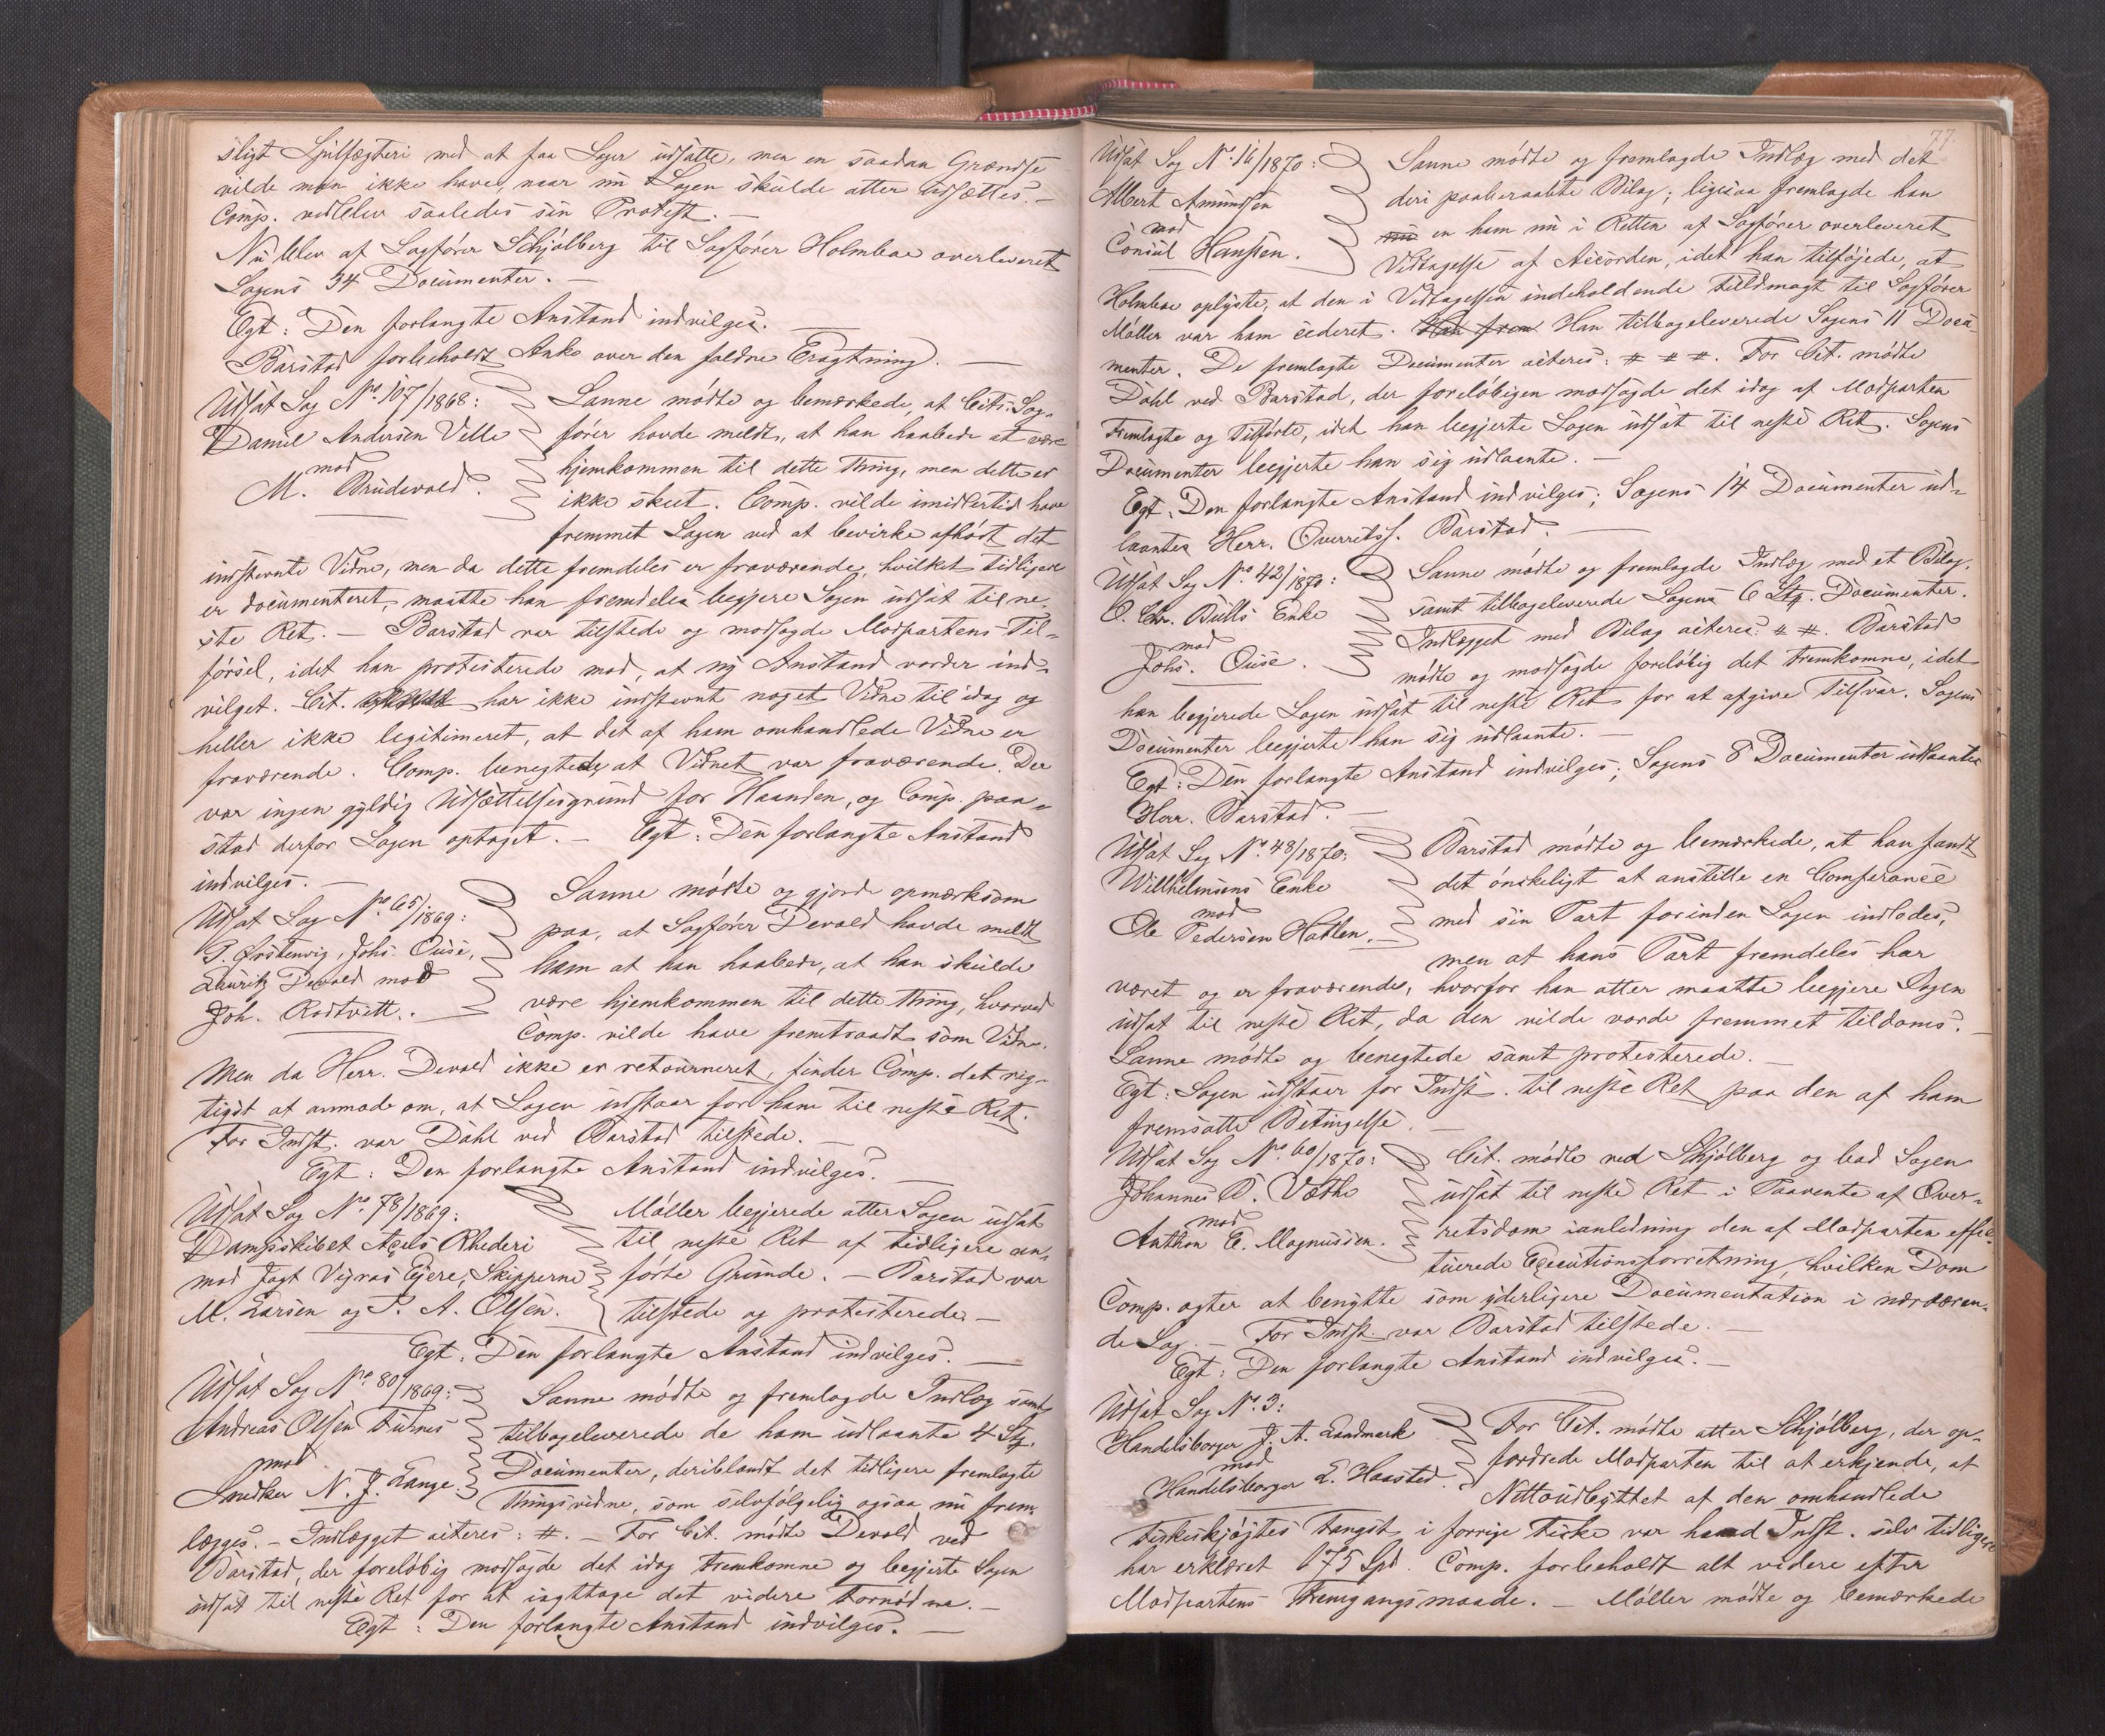 sligt Spilfægteri med at faa Sager udsatte, men en saadan Grændse
vilde man ikke have, naar nu Sagen skulde atter udsættes. —
Comp. vedblev saaledes sin Protest. —
Nu blev af Sagfører Schjølberg til Sagfører Holmboe overleveret
Sagens 34 Documenter. —
Egt: Den forlangte Anstand indvilges. —
Barstad forbeholdt Anke over den faldne Eragtning. —
Udsat Sag No. 107/1868:
Daniel Andersen Velle
mod
M. Brudevold.
Sanne mødte og bemærkede, at Cits. Sag-
fører havde meldt, at han haabede at være
hjemkommen til dette Thing, men dette er
ikke skeet. Comp. vilde imidlertid have
fremmet Sagen ved at bevirke afhørt det
indstevnte Vidne, men da dette fremdeles er fraværende, hvilket tidligere
er documenteret, maatte han fremdeles begjere Sagen udsat til ne-
ste Ret. — Barstad var tilstede og modsagde Modpartens Til-
førsel, idet han protesterede mod, at ny Anstand vorder ind-
vilget. Cit. har ikke indstevnt noget Vidne til idag og
heller ikke legitimeret, at det af ham omhandlede Vidne er
fraværende. Comp. benegtede, at Vidnet var fraværende. Der
var ingen gyldig Udsættelsesgrund for Haanden, og Comp. paa-
stod derfor Sagen optaget. — Egt: Den forlangte Anstand
indvilges. —
Udsat Sag No. 65/1869:
P. Østenvig, Johs. Ouse,
Lauritz Devold mod
Joh. Rødtvitt.
Sanne mødte og gjorde opmærksom
paa, at Sagfører Devold havde meldt
ham at han haabede, at han skulde
være hjemkommen til dette Thing, hvorved
Comp. vilde have fremtraadt som Vidne.
Men da Herr. Devold ikke er retourneret, finder Comp. det rig-
tigst at anmode om, at Sagen udstaar for ham til neste Ret.
For Indst. var Dahl ved Barstad tilstede. —
Egt: Den forlangte Anstand indvilges. —
Udsat Sag No. 78/1869:
Dampskibet Axels Rhederi
mod Jagt Vejras Ejere, Skipperne
M. Larsen og P. A. Olsen.
Møller begjerede atter Sagen udsat
til neste Ret af tidligere an-
førte Grunde. — Barstad var
tilstede og protesterede —
Egt. Den forlangte Anstand indvilges. —
Udsat Sag No. 80/1869:
Andreas Olsen Furnes
mod
Snedker N. J. Lange.
Sanne mødte og fremlagde Indlæg samt
tilbageleverede de ham udlaante 4 Stk.
Documenter, deriblandt det tidligere fremlagte
Thingsvidne, som selvfølgelig ogsaa nu frem-
lægges. — Indlægget aiteres: #. — For Cit. mødte Devold ved
Barstad, der foreløbig modsagde det idag Fremkomne og begjerte Sagen
udsat til neste Ret for at iagttage det videre Fornødne. —
Egt: Den forlangte Anstand indvilges. —
77.
Udsat Sag No. 16/1870:
Albert Amundsen
mod
Consul Hanssen.
Sanne mødte og fremlagde Indlæg med det
deri paaberaabte Bilag; ligesaa fremlagde han
nu en ham nu i Retten af Sagfører overleveret
Vedtagelse af Accorden, idet han tilføjede, at
Holmboe oplyste, at den i Vedtagelsen indeholdende Fuldmagt til Sagfører
Møller var ham cederet. Han frem Han tilbageleverede Sagens 11 Docu-
menter. De fremlagte Documenter aiteres: # # #. For Cit. mødte
Dahl ved Barstad, der foreløbigen modsagde det idag af Modparten
Fremlagte og Tilførte, idet han begjerte Sagen udsat til neste Ret. Sagens
Documenter begjerte han sig udlaante. —
Egt: Den forlangte Anstand indvilges; Sagens 14 Documenter ud-
laantes Herr. Overretss. Barstad. —
Udsat Sag No. 42/1870:
O. Chr. Bulls Enke
mod
Johs. Ouse.
Sanne mødte og fremlagde Indlæg med et Bilag,
samt tilbageleverede Sagens 6 Stk. Documenter.
Indlægget med Bilag aiteres: # #. Barstad
mødte og modsagde foreløbig det Fremkomne, idet
han begjerede Sagen udsat til neste Ret for at afgive Tilsvar. Sagens
Documenter begjerte han sig udlaante. —
Egt: Den forlangte Anstand indvilges; Sagens 8 Documenter udlaantes
Herr. Barstad. —
Udsat Sag No. 48/1870:
Willhelmsens Enke
mod
Ole Pedersen Hatlen.
Barstad mødte og bemærkede, at han fandt
det ønskeligt at anstille en Comferance
med sin Part forinden Sagen indlodes,
men at hans Part fremdeles har
været og er fraværende, hvorfor han atter maatte begjere Sagen
udsat til neste Ret, da den vilde vorde fremmet tildoms. —
Sanne mødte og benegtede samt protesterede. —
Egt: Sagen udstaar for Indst. til neste Ret paa den af ham
fremsatte Betingelse. —
Udsat Sag No. 60/1870:
Johannes D. Vathe
mod
Anthon E. Magnussen.
Cit. mødte ved Schjølberg og bad Sagen
udsat til neste Ret i Paavente af Over-
retsdom ianledning den af Modparten effec-
tuerede Executionsforretning, hvilken Dom
Comp. agter at benytte som yderligere Documentation i nærværen-
de Sag. — For Indst. var Barstad tilstede. —
Egt: Den forlangte Anstand indvilges. —
Udsat Sag No. 3:
Handelsborger J. A. Landmark
mod
Handelsborger L. Haasted.
For Cit. mødte atter Schjølberg, der op-
fordrede Modparten til at erkjende, at
Nettoudbyttet af den omhandlede
Fiskeskjøjtes Fangst i forrige Fiske var hvad Indst. selv tidligere
har erklæret 175 Spd. Comp. forbeholdt alt videre efter
Modpartens Fremgangsmaade. — Møller mødte og bemærkede